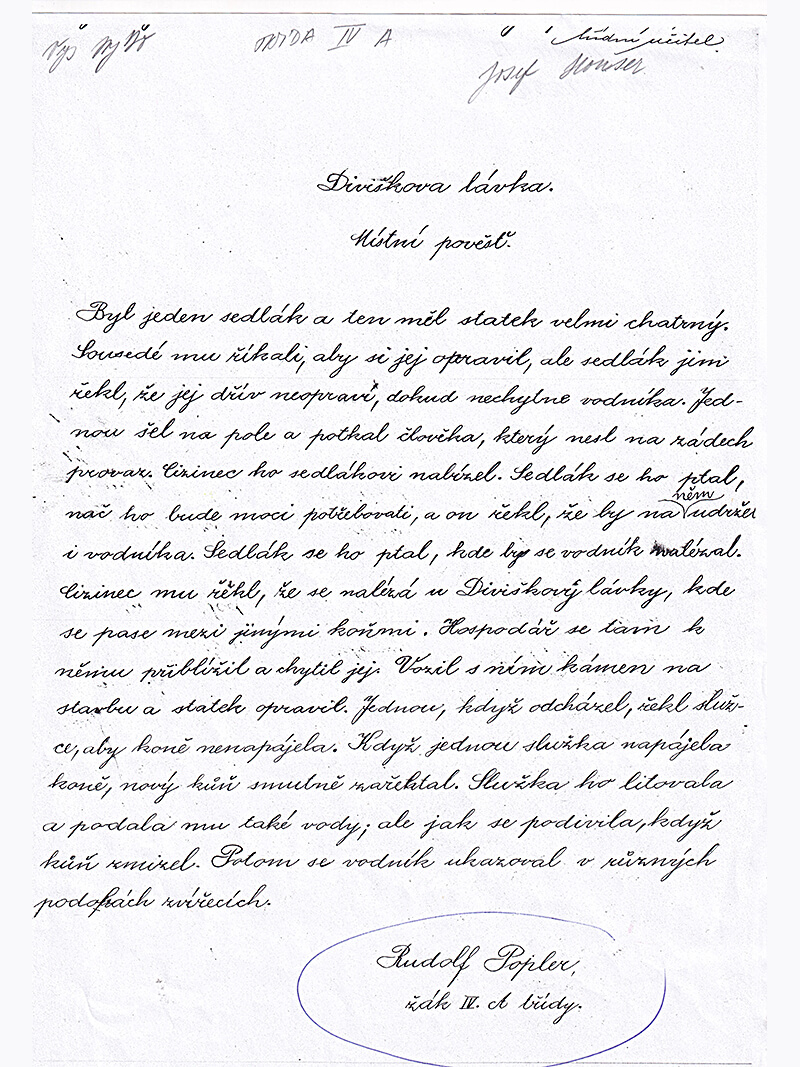 TŘÍDA IV A
třídní učitel
Josef
Diviškova lávka.
Místní pověsť.
Byl jeden sedlák a ten měl statek velmi chatrný.
Sousedé mu říkali, aby si jej opravil, ale sedlák jim
řekl, že jej dřív neopraví, dokud nechytne vodníka. Jed-
nou šel na pole a potkal člověka, který nesl na zádech
provaz. Cizinec ho sedlákovi nabízel. Sedlák se ho ptal,
nač ho bude moci potřebovati, a on řekl, že by na něm udržel
i vodníka. Sedlák se ho ptal, kde by se vodník nalézal.
Cizinec mu řěkl, že se nalézá u Diviškovy lávky, kde
se pase mezi jinými koňmi. Hospodář se tam k
němu přiblížil a chytil jej. Vozil s ním kámen na
stavbu a statek opravil. Jednou, když odcházel, řekl služ-
ce, aby koně nenapájela. Když jednou služka napájela
koně, nový kůň smutně zařehtal. Služka ho litovala
a podala mu také vody; ale jak se podivila, když
kůň zmizel. Potom se vodník ukazoval v různých
podobách zvířecích.
Rudolf Popler,
žák IV. A třídy.